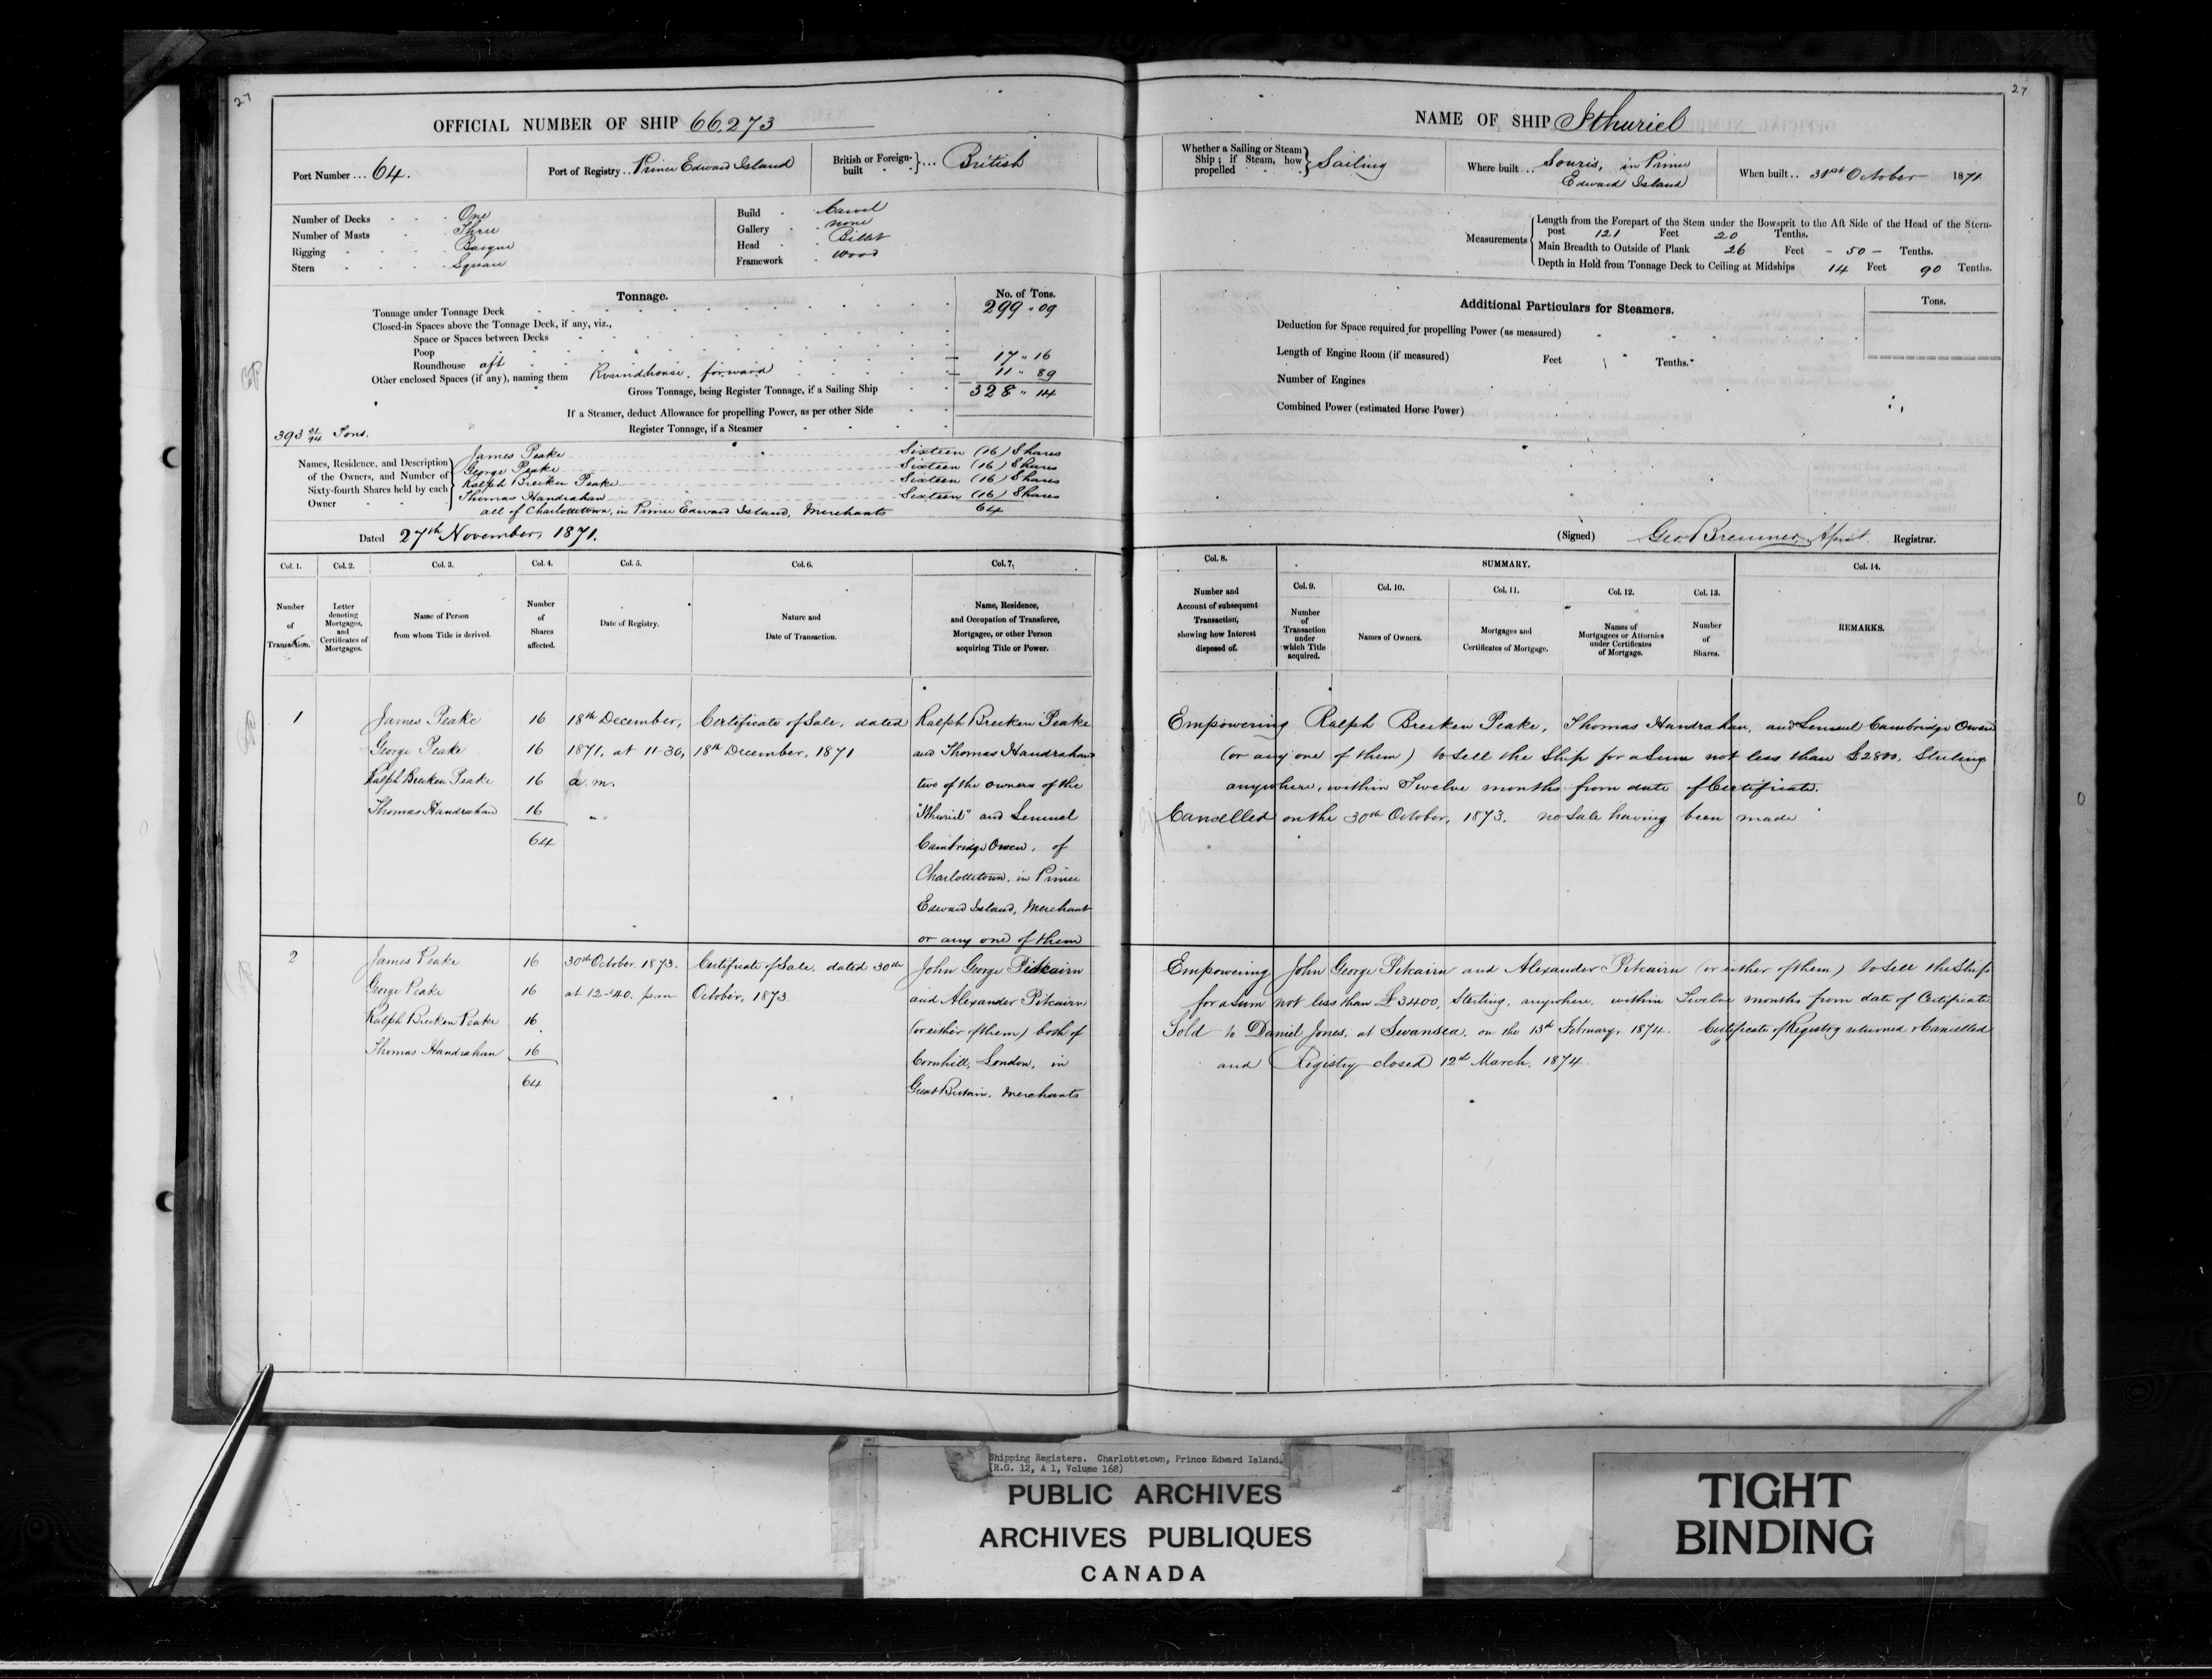 27
OFFICIAL NUMBER OF SHIP 66.273
Port Number ... 64.
Port of Registry .. Prince Edward Island
British or Foreign-built } ... British
Number of Decks One
Number of Masts Three
Rigging Barque
Stern Square
Build Carvel
Gallery none
Head Billet
Framework Wood
Tonnage.
No. of Tons.
Tonnage under Tonnage Deck 299 " 09
Closed-in Spaces above the Tonnage Deck, if any, viz.,
Space or Spaces between Decks
Poop
Roundhouse aft 17 " 16
Other enclosed Spaces (if any), naming them Roundhouse. forward 11 " 89
Gross Tonnage, being Register Tonnage, if a Sailing Ship 328 " 14
If a Steamer, deduct Allowance for propelling Power, as per other Side
Register Tonnage, if a Steamer
393 Tons.
Names, Residence, and Description of the Owners, and Number of Sixty-fourth Shares held by each Owner
James Peake Sixteen (16) Shares
George Peake Sixteen (16) Shares
Ralph Brecken Peake Sixteen (16) Shares
Thomas Handrahan Sixteen (16) Shares
all of Charlottetown, in Prince Edward Island, Merchants 64
Dated 27th November, 1871.
Col. 1. Col. 2. Col. 3. Col. 4. Col. 5. Col. 6. Col. 7.
Number of Transaction.
Letter denoting Mortgages, and Certificates of Mortgages.
Name of Person from whom Title is derived.
Number of Shares affected.
Date of Registry.
Nature and Date of Transaction.
Name, Residence, and Occupation of Transferee, Mortgagee, or other Person acquiring Title or Power.
1 James Peake 16 18th December, Certificate of Sale, dated Ralph Brecken Peake
George Peake 16 1871, at 11-30, 18th December, 1871 and Thomas Handrahan
Ralph Brecken Peake 16 a.m. two of the owners of the
Thomas Handrahan 16 "Ithuriel" and Lemuel
64 Cambridge Owen, of
Charlottetown, in Prince
Edward Island, Merchant
or any one of them
2 James Peake 16 30th October. 1873. Certificate of Sale, dated 30th John George Pitcairn
George Peake 16 at 12-40, p.m October, 1873 and Alexander Pitcairn
Ralph Brecken Peake 16 (or either of them) both of
Thomas Handrahan 16 Cornhill, London, in
64 Great Britain. Merchants
27
NAME OF SHIP Ithuriel
Whether a Sailing or Steam Ship; if Steam, how propelled } Sailing
Where built ... Souris, in Prince
Edward Island
When built .. 31st October 1871
Measurements
Length from the Forepart of the Stem under the Bowsprit to the Aft Side of the Head of the Stern-
post 121 Feet 20 Tenths.
Main Breadth to Outside of Plank 26 Feet - 50 - Tenths.
Depth in Hold from Tonnage Deck to Ceiling at Midships 14 Feet 90 Tenths.
Additional Particulars for Steamers.
Tons.
Deduction for Space required for propelling Power (as measured)
Length of Engine Room (if measured) Feet Tenths.
Number of Engines
Combined Power (estimated Horse Power)
(Signed) Geo. Bremner, Registrar.
Col. 8. SUMMARY. Col. 14.
Col. 9. Col. 10. Col. 11. Col. 12. Col. 13.
Number and Account of subsequent Transaction, showing how Interest disposed of.
Number of Transaction under which Title acquired.
Names of Owners.
Mortgages and Certificates of Mortgage.
Names of Mortgagees or Attornies under Certificates of Mortgage.
Number of Shares.
REMARKS.
Empowering Ralph Brecken Peake, Thomas Handrahan, and Lemuel Cambridge Owen
(or any one of them) to sell the Ship for a Sum not less than £2800, Sterling
anywhere, within Twelve months from date of Certificate.
Cancelled on the 30th October, 1873. no Sale having been made
Empowering John George Pitcairn and Alexander Pitcairn (or either of them) to sell the Ship
for a Sum not less than £3400, Sterling, anywhere, within Twelve months from date of Certificate
Sold to Daniel Jones, at Swansea, on the 13th February, 1874. Certificate of Registry returned & Cancelled
and Registry closed 12th March, 1874.
Shipping Registers. Charlottetown, Prince Edward Island,
(R.G. 12, A 1, Volume 168)
PUBLIC ARCHIVES
ARCHIVES PUBLIQUES
CANADA
TIGHT
BINDING